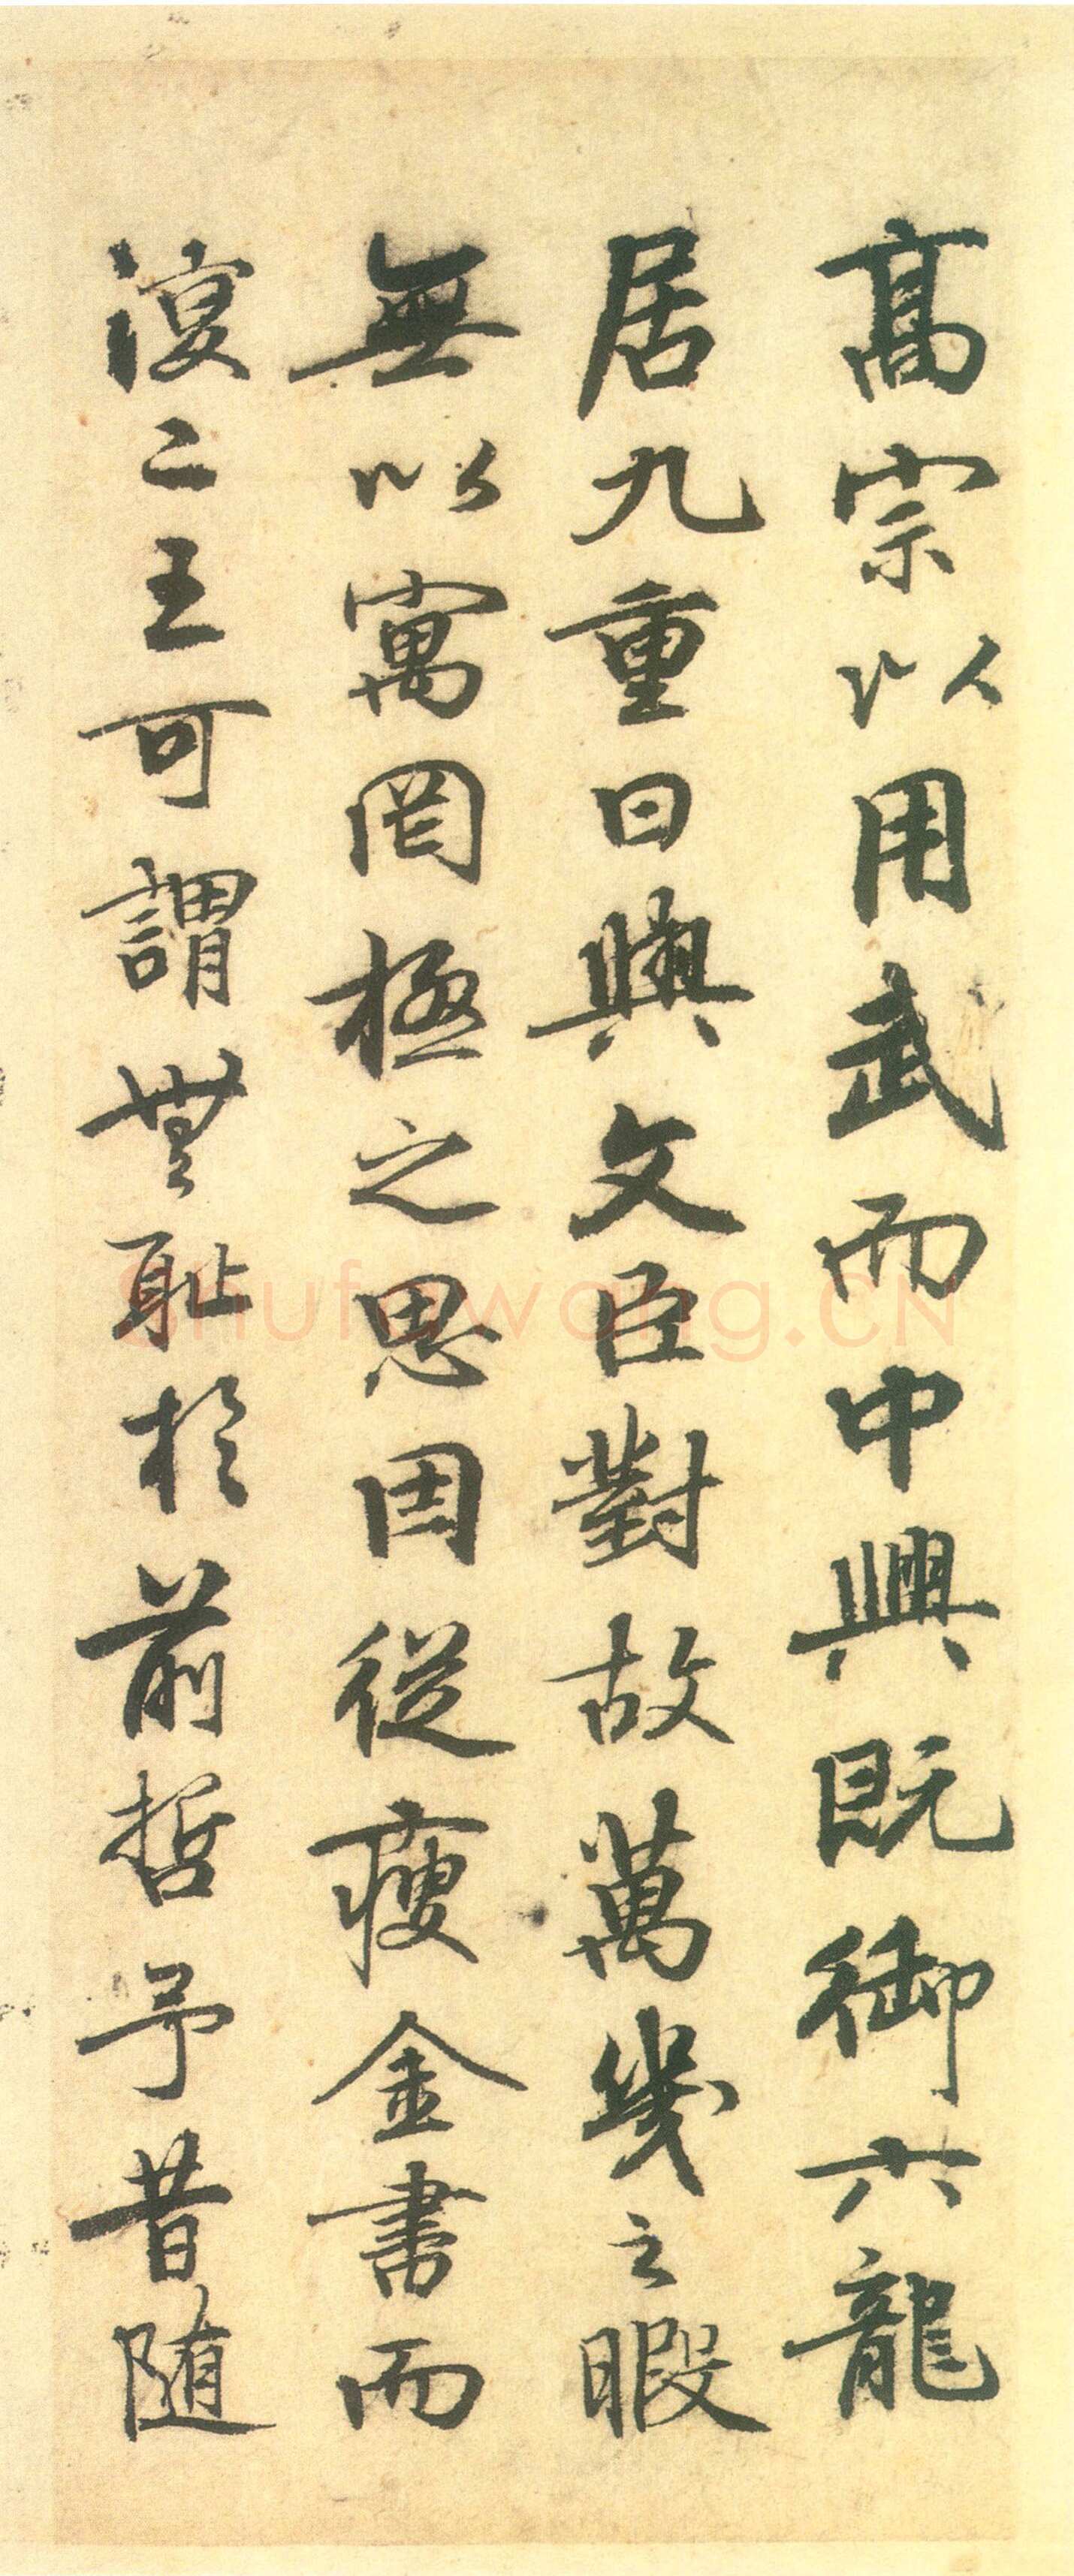 高宗以用武而中興既御六龍
居九重日與文臣對故萬幾之暇
無以寓罔極之思因從瘦金書而
復二王可謂無恥於前哲予昔随
Shufawang.CN